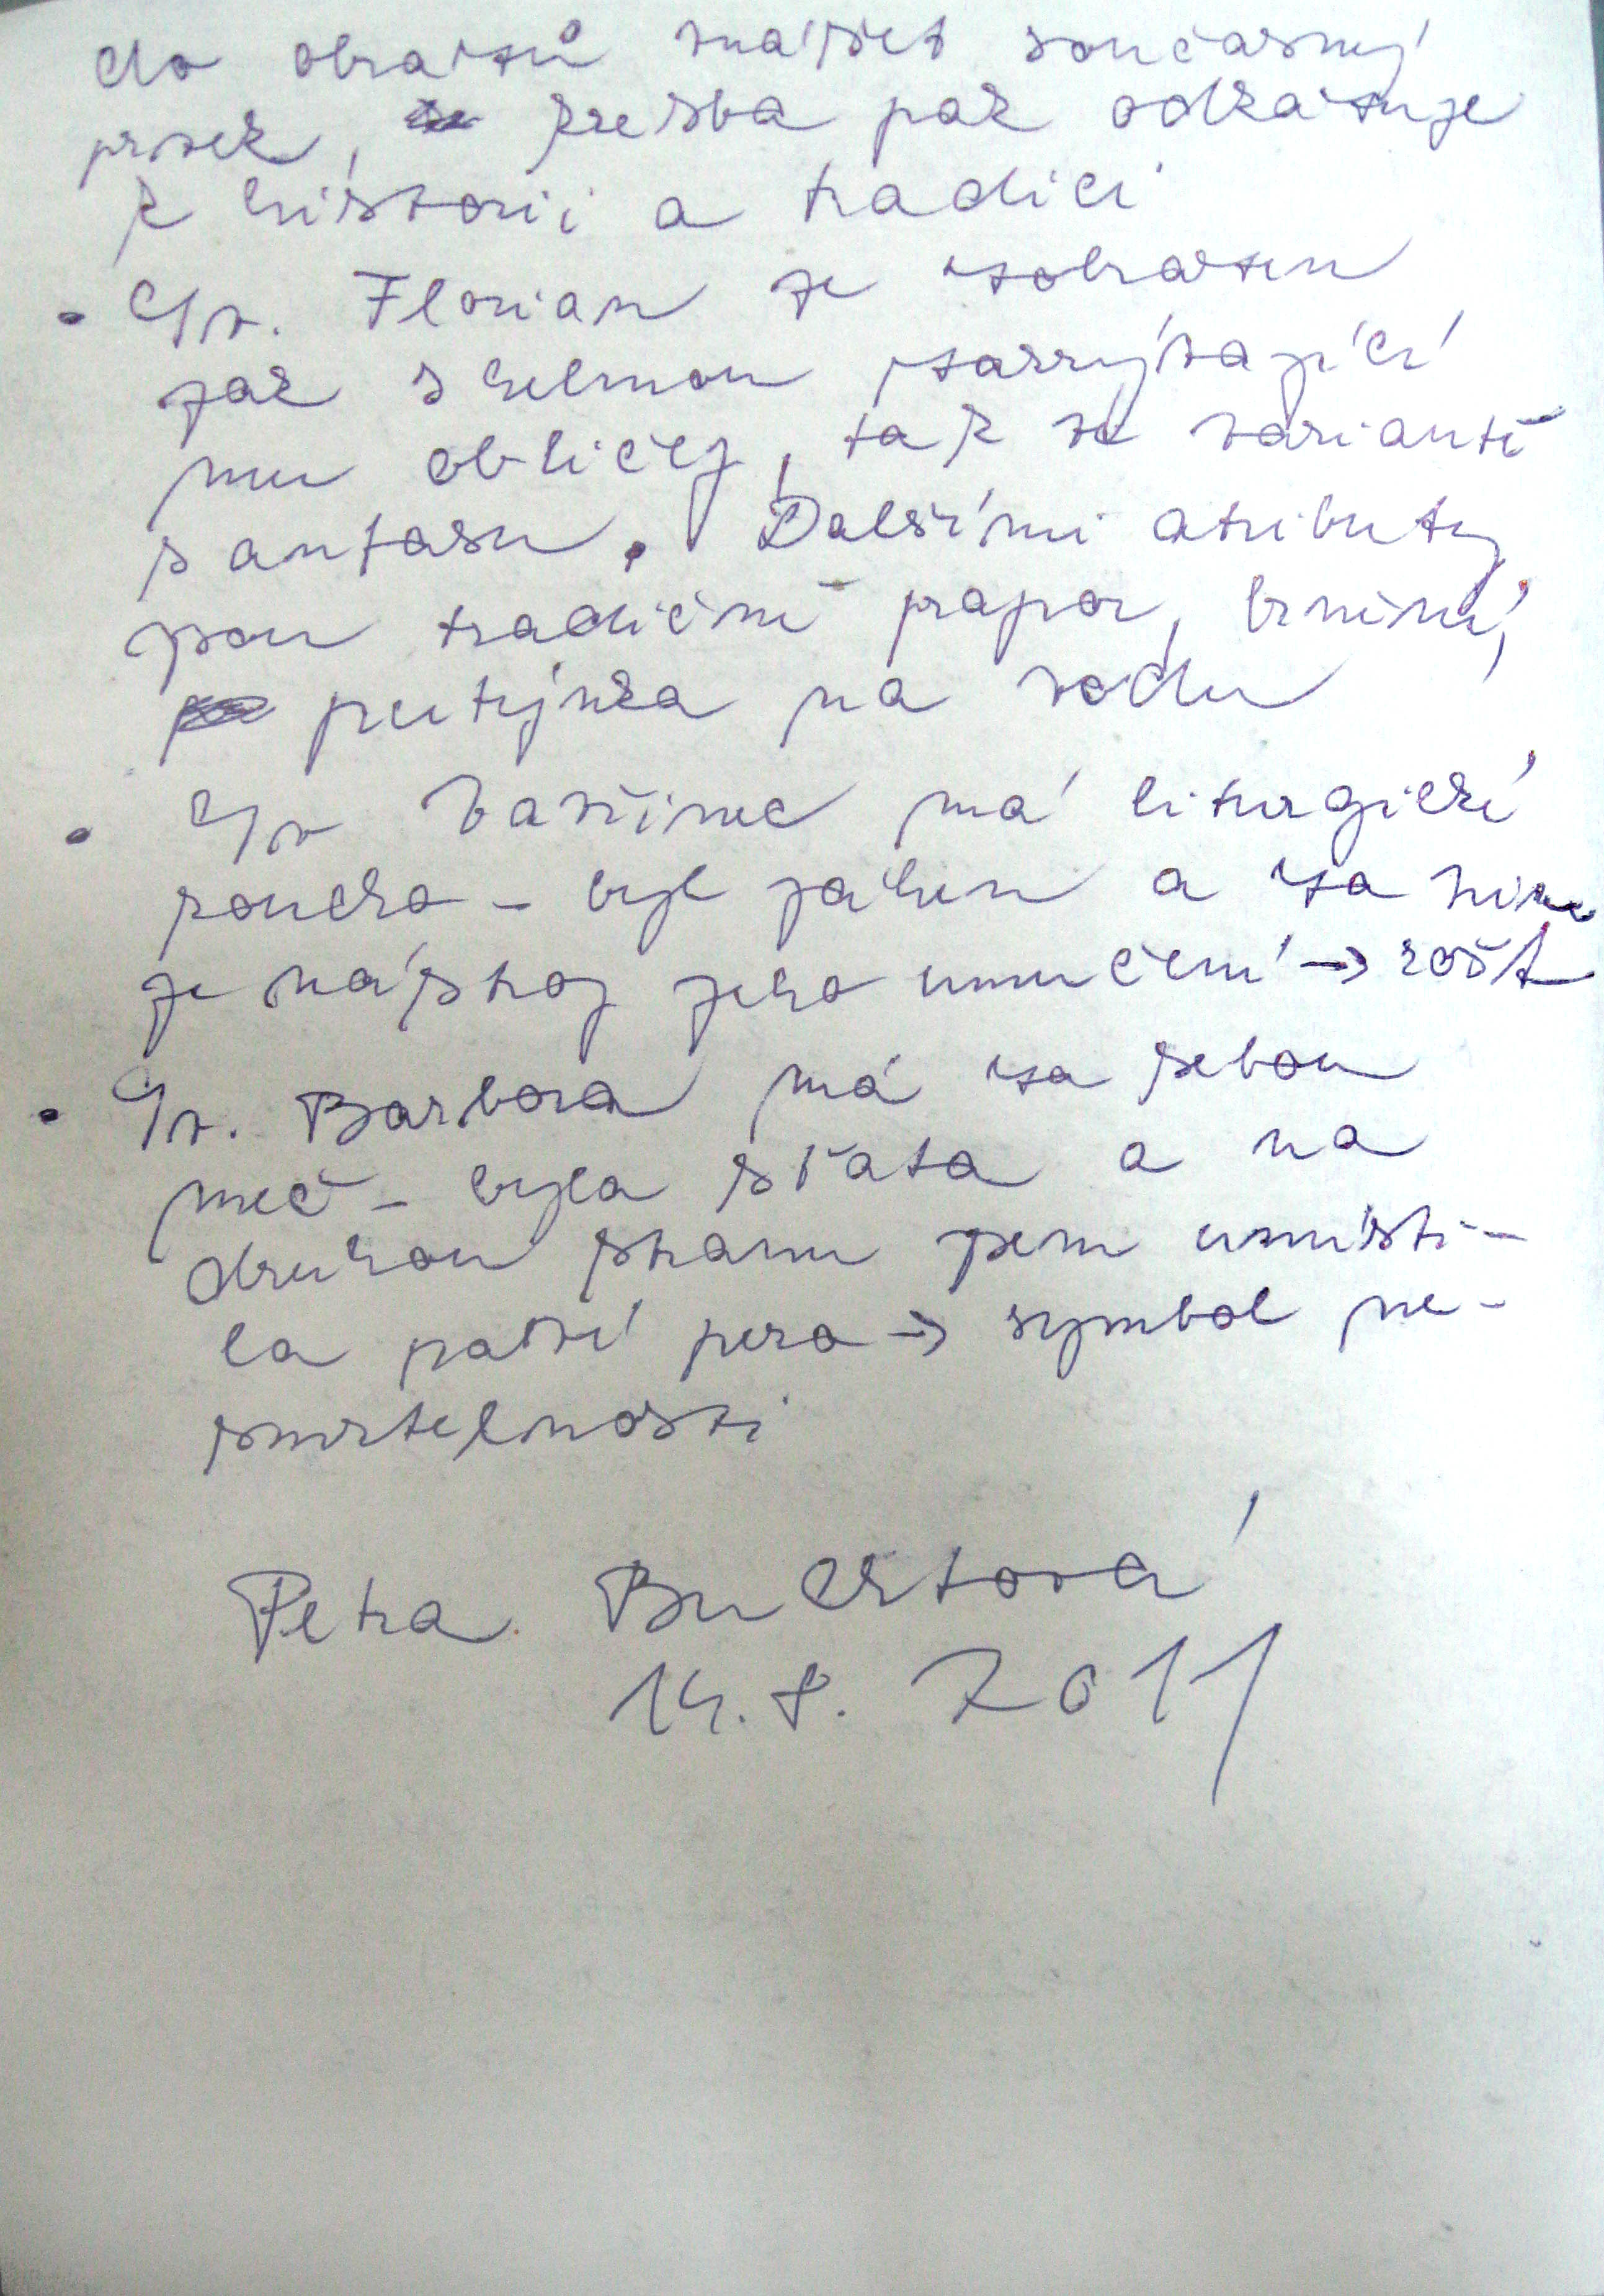 do obrazů vnášet současný
prvek, kresba pak odkazuje
k historii a tradici
• Sv. Florian je zobrazen
jak s helmou zakrývající
mu obličej, tak ve variantě
s antasu. Dalšími atributy
jsou tradičně prapor, brnění,
putýnka na vodu
• Sv Vavřinec má liturgické
roucho - byl jáhen a za ním
je nástroj jeho umučení → rošt
• Sv. Barbora má za sebou
meč - byla sťata a na
druhou stranu jsem umísti-
la paví pero → symbol ne-
smrtelnosti
Petra Buchtová
14. 8. 2011